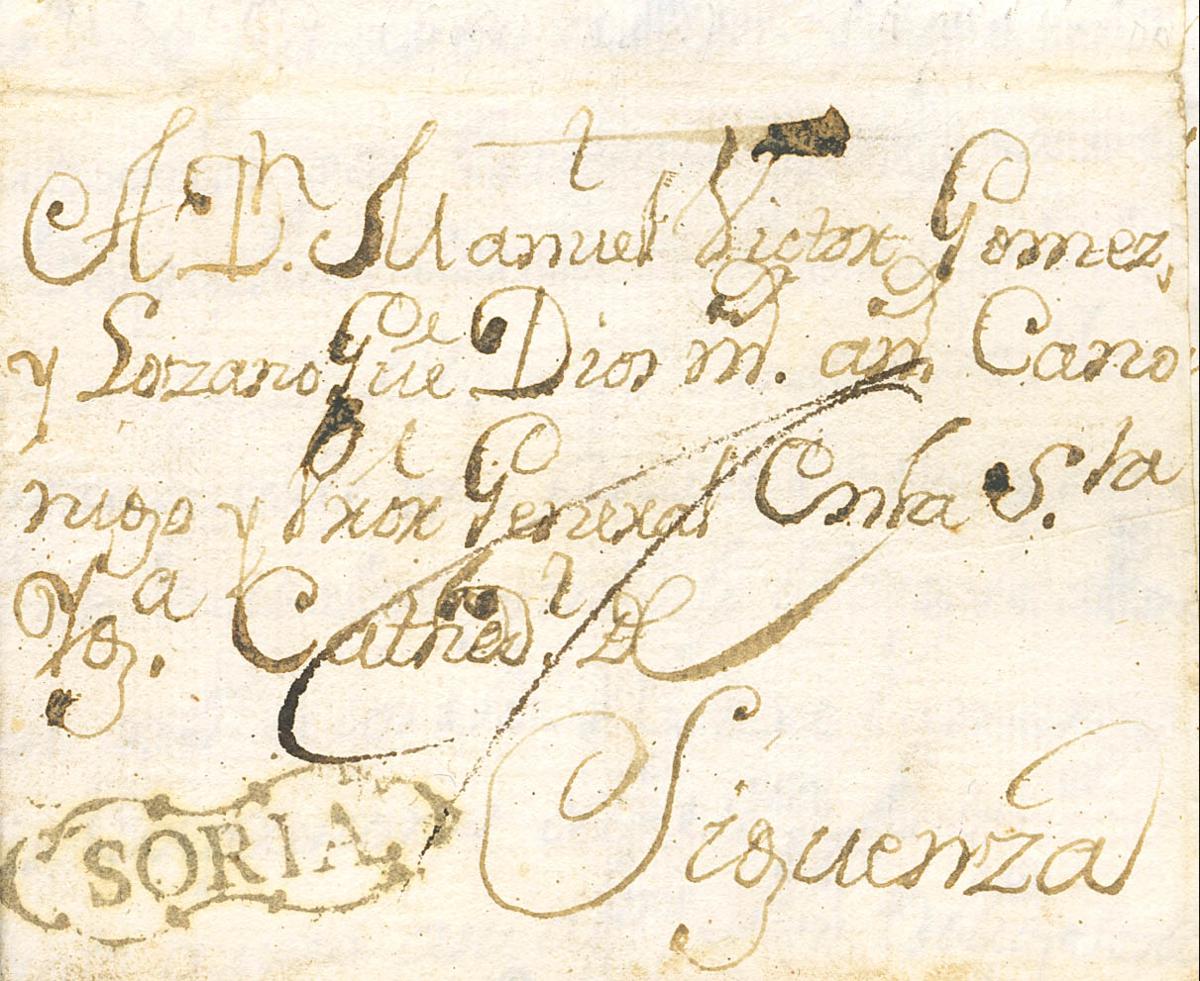 A Dn. Manuel Victor Gomez,
y Lozano Gue Dios ms. as. Cano
nigo y Pror General En la S.ta
Yga. Cathed.l de
Siguenza
SORIA